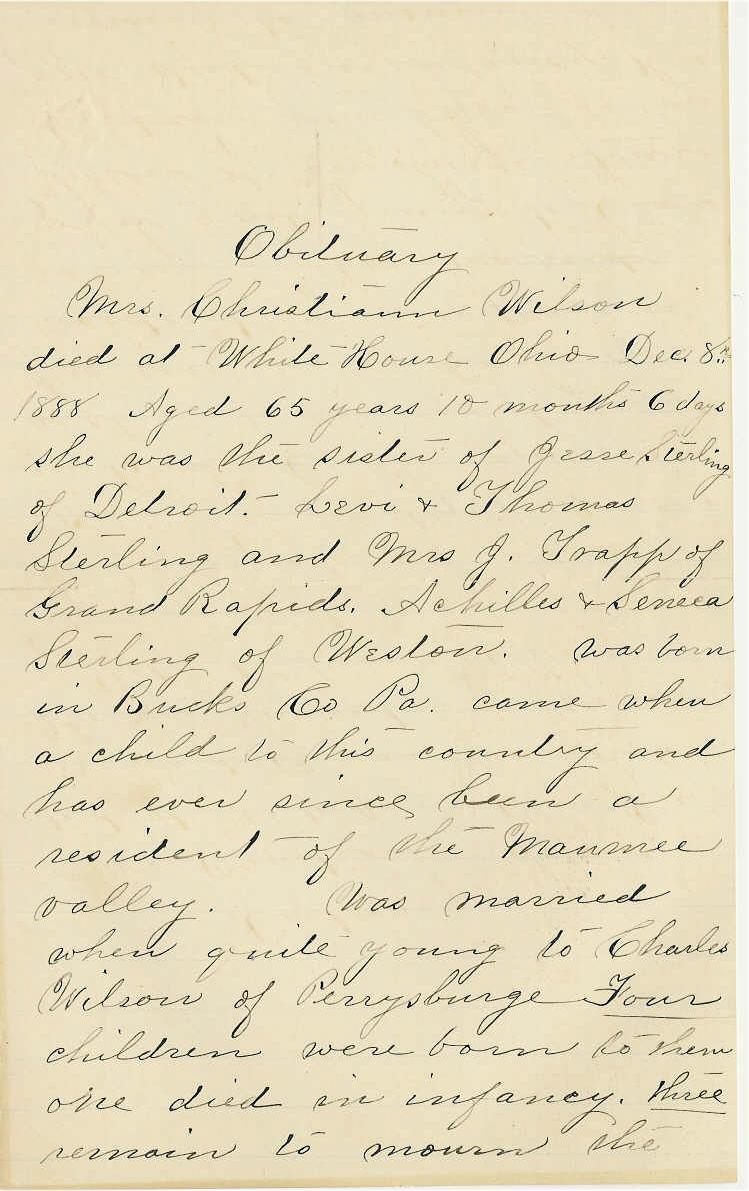 Obituary
Mrs. Christiann Wilson
died at White House Ohio Dec. 8th
1888 Aged 65 years 10 months 6 days
she was the sister of Jesse Sterling
of Detroit. Levi & Thomas
Sterling and Mrs J. Trapp of
Grand Rapids. Achilles & Seneca
Sterling of Weston. Was born
in Bucks Co Pa. came when
a child to this country and
has ever since been a
resident of the Maumee
valley. Was married
when quite young to Charles
Wilson of Perrysburge Four
children were born to them
one died in infancy. three
remain to mourn the